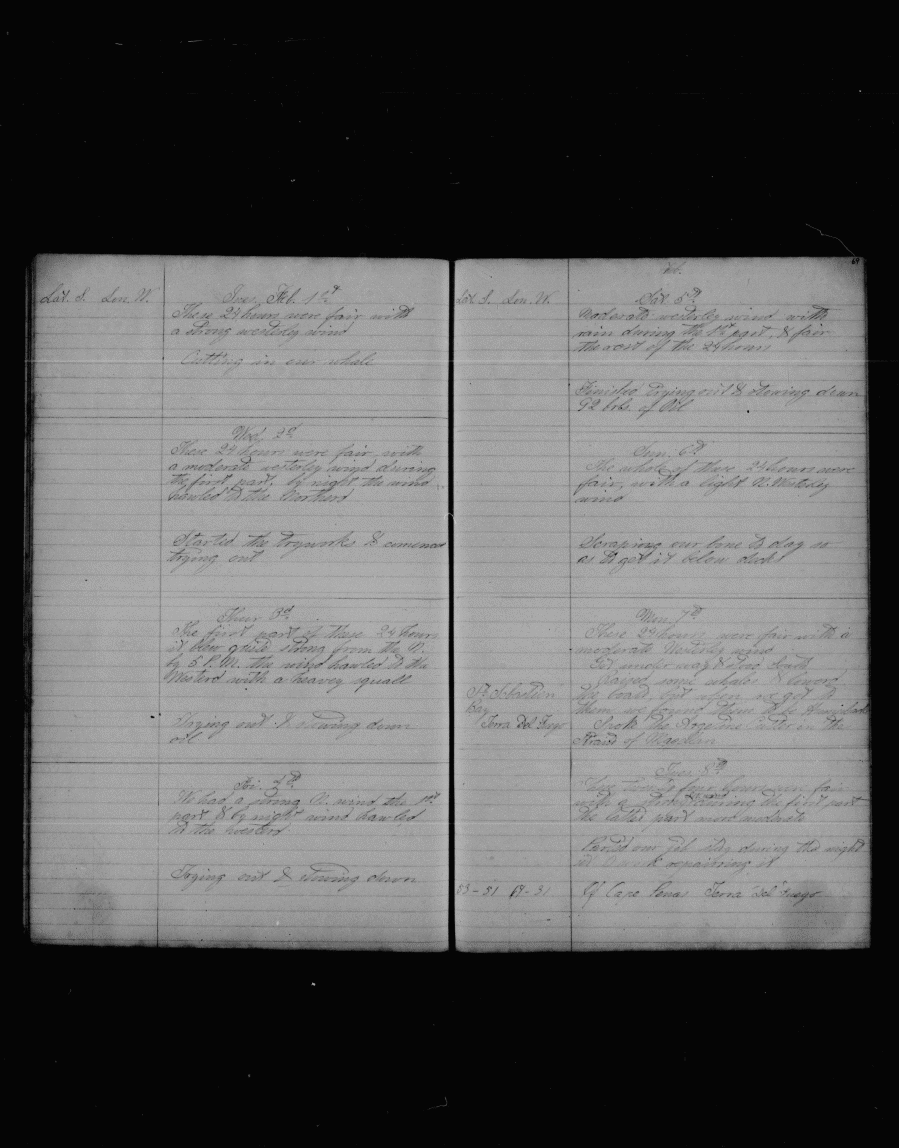 Lat. S. Lon. W.
Tues. Feb. 1st
These 24 hours were fair with
a strong westerly wind
Cutting in our whale
Wed. 2d
These 24 hours were fair with
a moderate westerly wind during
the first part, by night the wind
hauled to the Northerd
Started the tryworks &
trying out
Thur 3d
The first part of these 24 hours
it blew quite strong from the N.
by 5 P.M. the wind hauled to the
Westerd with a heavey squall
Trying out & stowing down
oil
Fri. 4th
We had a strong N. wind the 1st
part & by night wind hawled
to the westerd
Trying out & stowing down
64
Feb.
Lat S. Lon. W.
Sat 5th
Moderate westerly wind with
rain during the 1st part, & fair
the rest of the 24 hours
Finished trying out & stowing down
92 bbls. of Oil
Sun. 6th
The whole of these 24 hours were
fair, with a light N. Westerly
wind
Scraping our bone to day so
as to get it below deck
Mon. 7th
These 24 hours were fair with a
moderate Westerly wind
Got under way & stood South
Raised some whales & lowered
the boats but when we got to
them we found them to be Humpbacks
St. Sebastian
Bay
Terra Del Fuego
Spoke the in the
of
Tues. 8th
These twenty four hours were fair
with a strong during the first part
the latter part more moderate
our jib stay during the night
at work repairring it
53-51 67-31 Of Cape Penas Terra Del Fuego